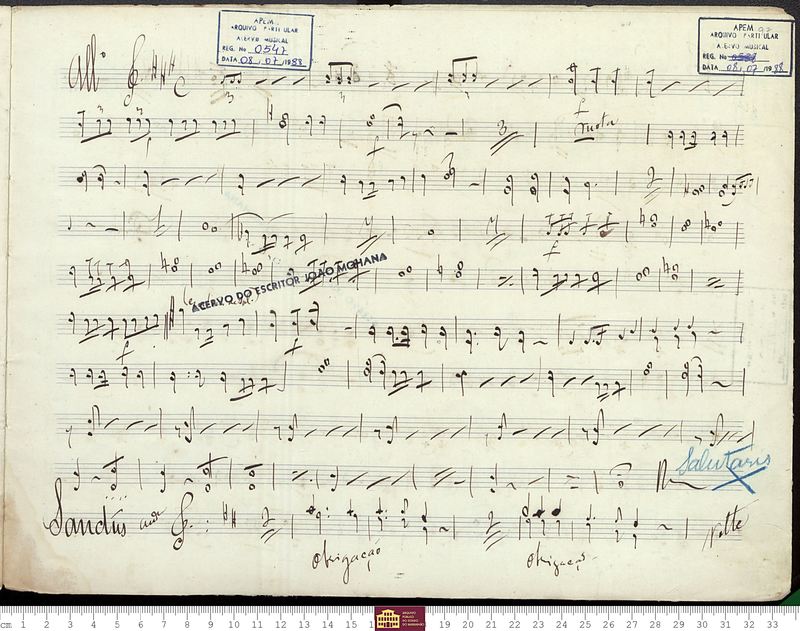 APEM
ARQUIVO PARTICULAR
ACERVO MUSICAL
REG. No 0547
DATA 08, 07, 1988
APEM
ARQUIVO PARTICULAR
ACERVO MUSICAL
REG. No
DATA 08, 07, 1988
All°
3 3
3 3
f
f
f
ACERVO DO ESCRITOR JOÃO MOHANA
f f
Salutaris
Sanctus and.
Volte
Obrigação Obrigação
cm 1 2 3 4 5 6 7 8 9 10 11 12 13 14 15 19 20 21 22 23 24 25 26 27 28 29 30 31 32 33
ARQUIVO PÚBLICO DO ESTADO DO MARANHÃO